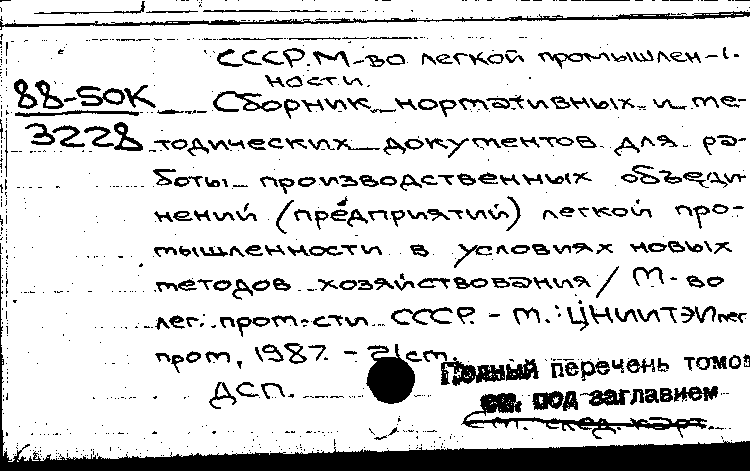 СССР. М-во легкой промышлен-
ности.
88-50К
3228
Сборник нормативных и ме-
тодических документов для ра-
боты производственных объеди-
нений (предприятий) легкой про-
мышленности в условиях новых
методов хозяйствования / М-во
лег. пром-сти СССР. - М. : ЦНИИТЭИлег
пром, 1987. - 21 см.
ДСП.
Полный перечень томов
см. под заглавием
См. след. карт.